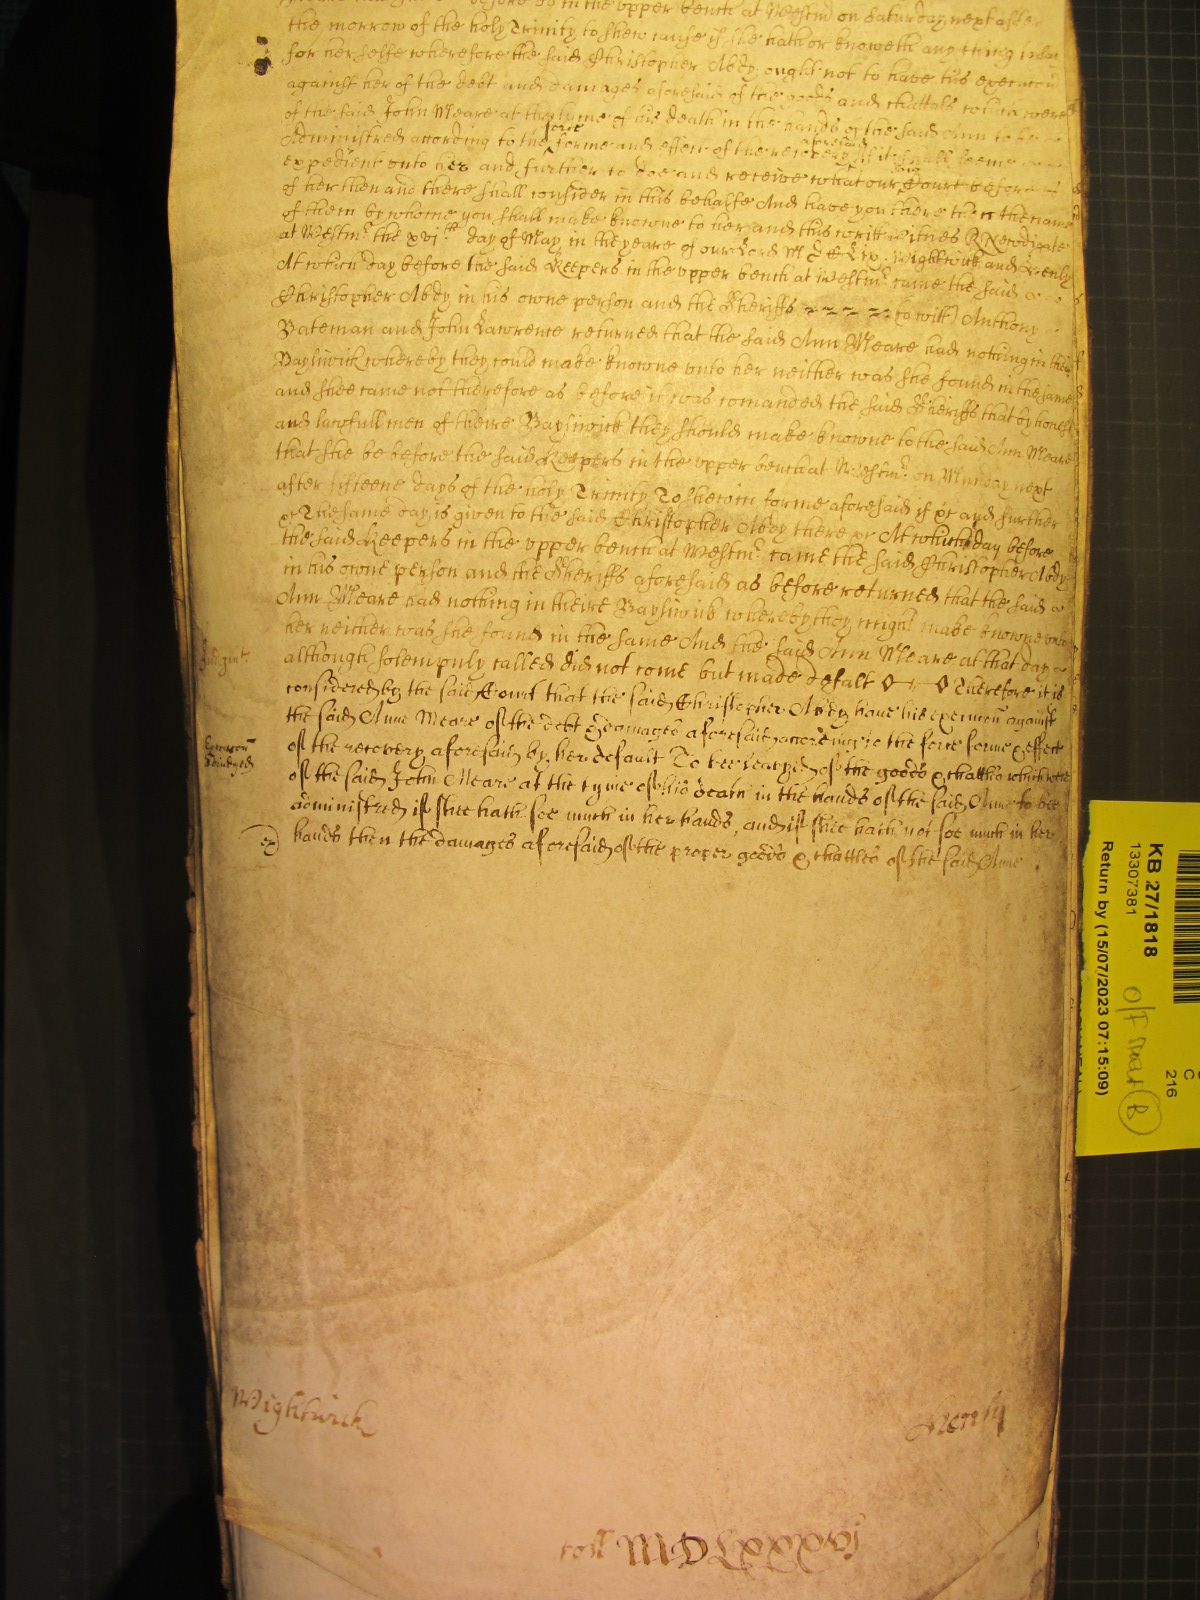 before us in the upper bench at Westm on Saturday next after
the morrow of the holy Trinity to shew cause if she hath or knoweth any thing
for her selfe wherefore the said Christopher Abdy ought not to have his execucon
against her of the debt and damages aforesaid of the goods and chattals which were
of the said John Meare at the tyme of his death in the hands of the said Ann to be
Administred according to the force forme and effect of the recovery aforesaid if it shall seeme
expedient unto her and further to doe and receive what our said Court before
of her then and there shall consider in this behalfe And have you there then the names
of them by whome you shall make knowne to her and this writt Witnes R Newdigate
at Westm the xvith day of May in the yeare of our Lord MDCLix Wightwick and Henly
At which day before the said Keepers in the upper bench at Westm came the said
Christopher Abdy in his owne person and the Sheriffs to witt Anthony
Bateman and John Lawrence returned that the said Ann Meare had nothing in their
Baylwick whereby they could make knowne unto her neither was she found in the same
and shee came not therefore as before it was comanded the said Sheriffs that by honest
and lawfull men of theire Baylwick they should make knowne to the said Ann Meare
that she be before the said Keepers in the upper bench at Westm on Munday next
after fifteene days of the holy Trinity To shew in forme aforesaid if &c and further
&c The same day is given to the said Christopher Abdy there &c At which day before
the said Keepers in the upper bench at Westm came the said Christopher Abdy
in his owne person and the Sheriffs aforesaid as before returned that the said
Ann Meare had nothing in theire Baylwick whereby they might make knowne unto
her neither was she found in the same And the said Ann Meare at that day
Judgmt
although solempnly called did not come but made defalt Therefore it is
considered by the said Court that the said Christopher Abdy have his execucon against
the said Anne Meare of the debt & damages aforesaid according to the force forme & effect
of the recovery aforesaid by her default To bee leavyed of the goods & chattls which were
of the said John Meare at the tyme of his death in the hands of the said Anne to bee
administred if shee hath soe much in her hands, and if shee hath not soe much in her
hands then the damages aforesaid of the proper goods & chattles of the said Anne
Wightwick
Henly
rost MDCLxxxj
KB 27/1818
13307381
Return by (15/07/2023 07:15:09)
C
216
B